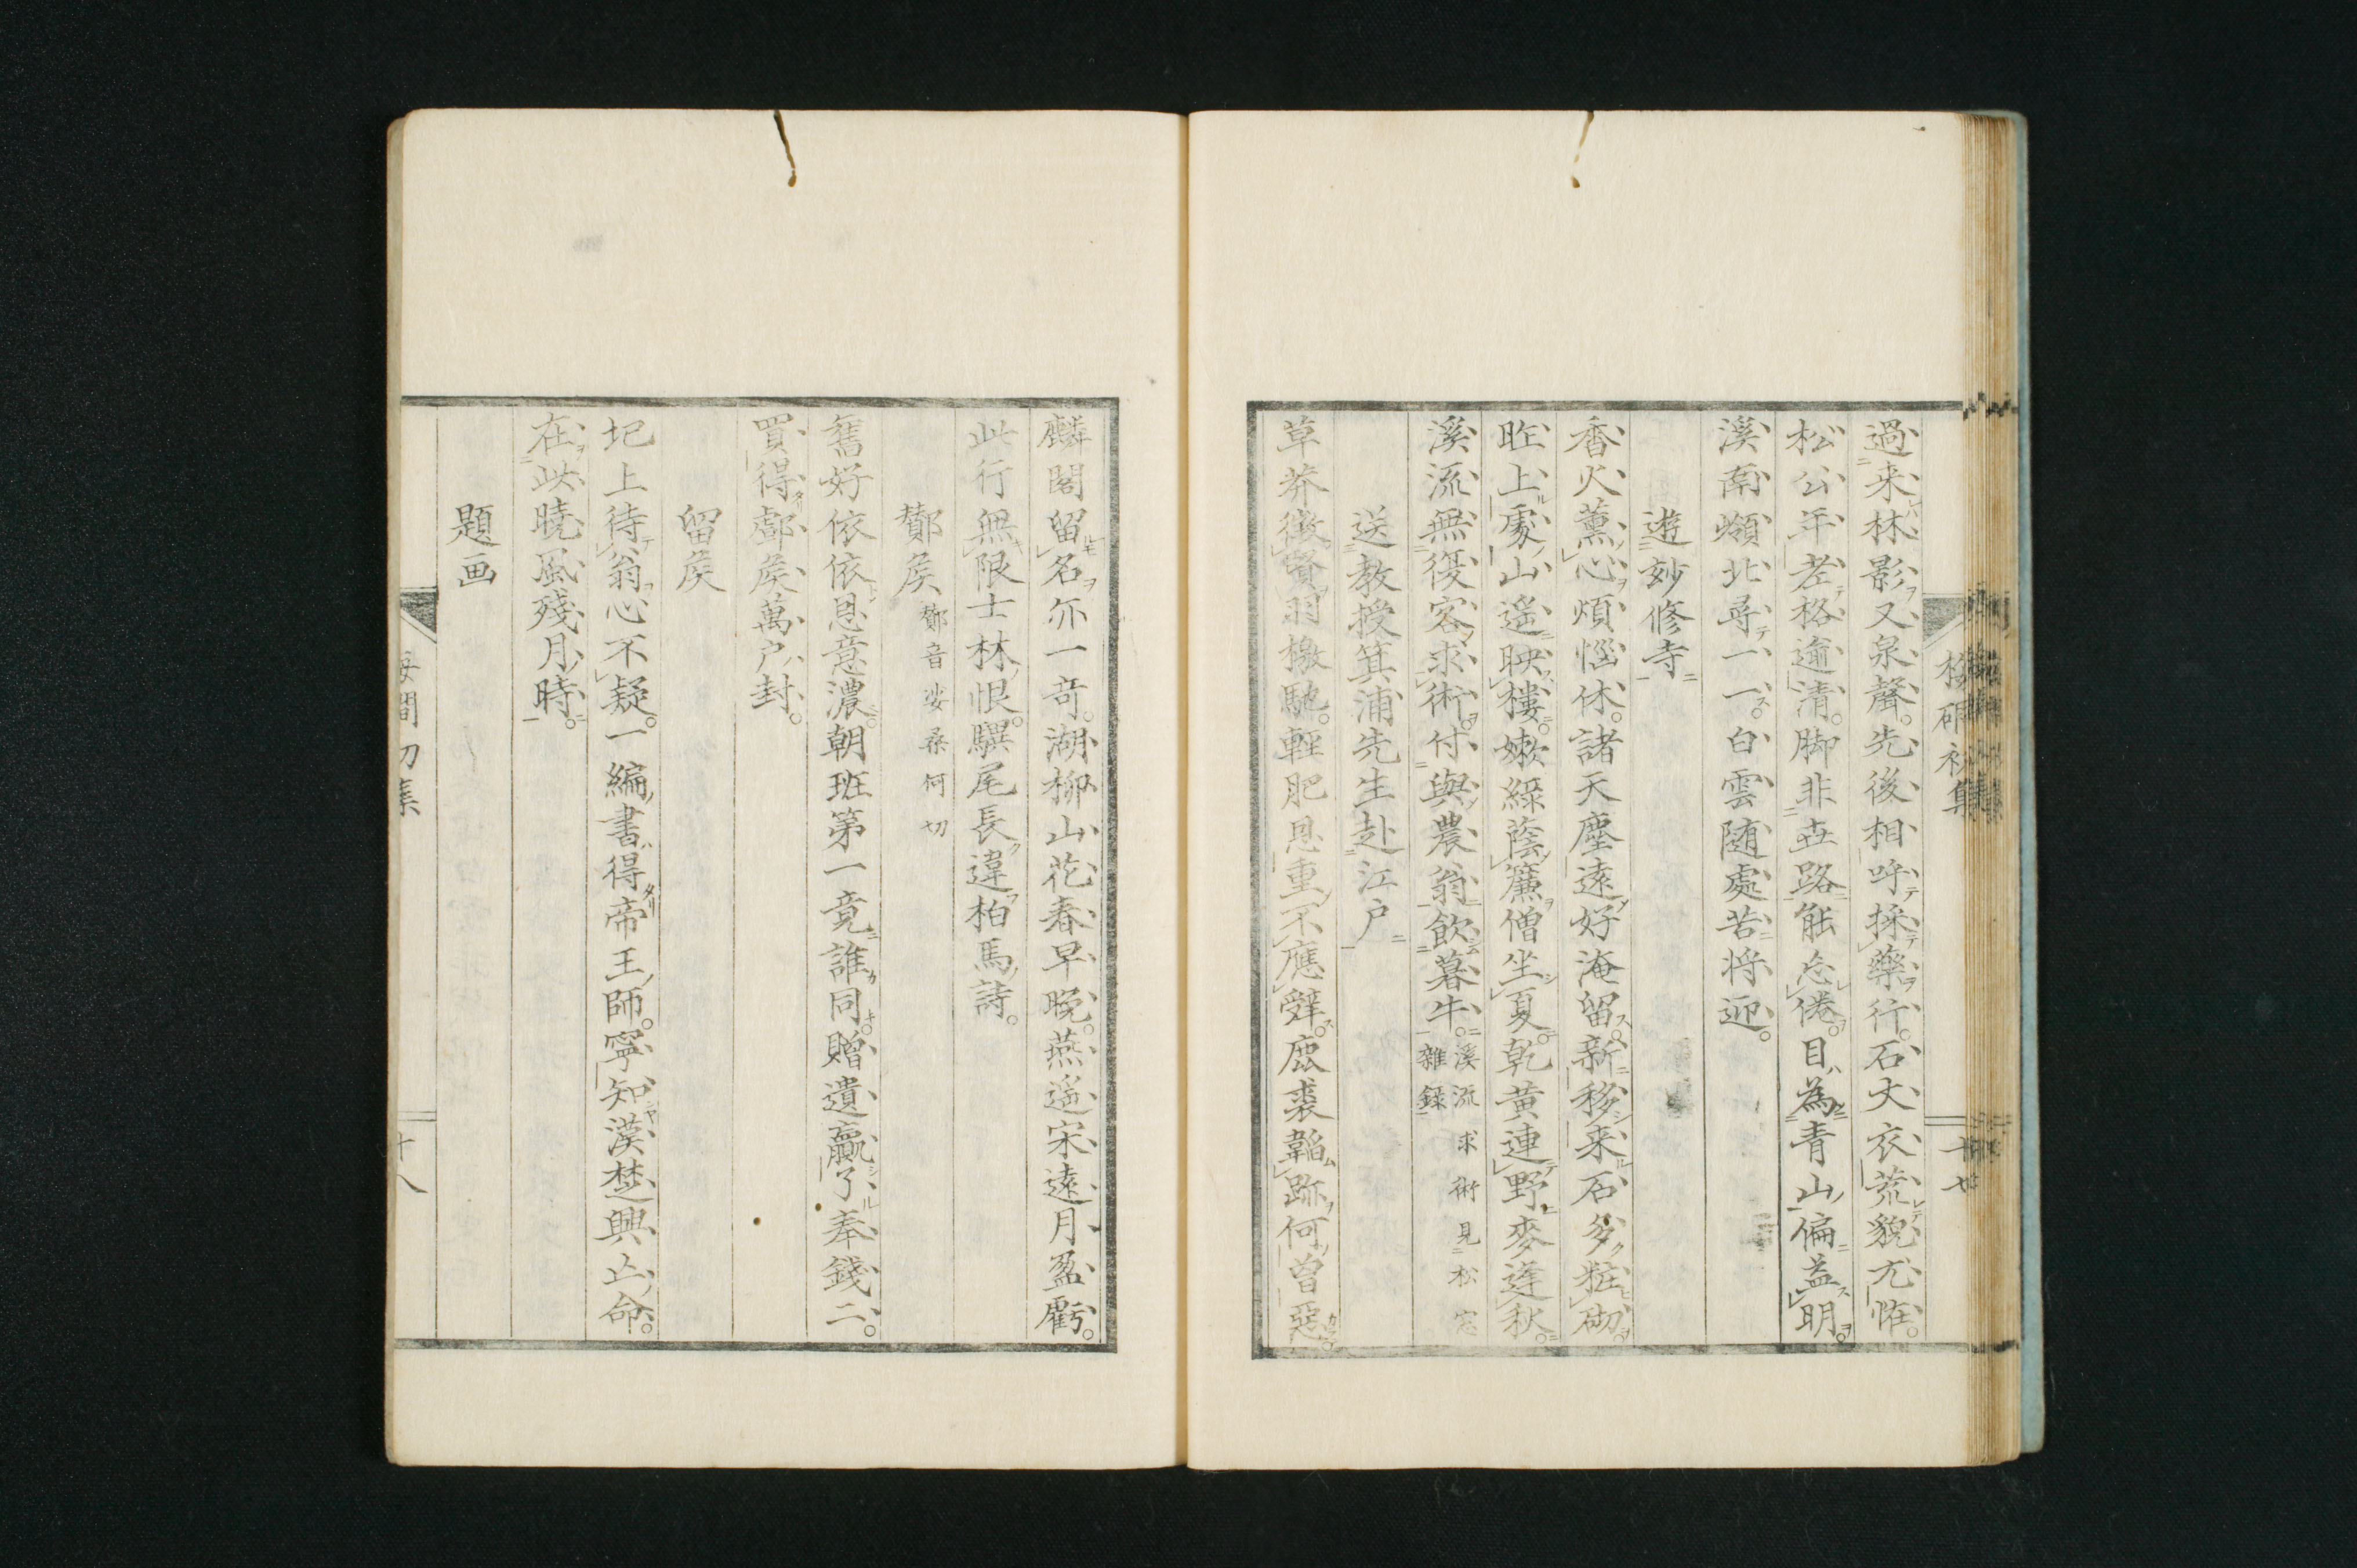 過来林影又泉聲。先後相呼採藥行。石丈衣荒貌尤恠。
松公年老格逾清。脚非世路能忘倦。目為青山偏益明。
溪南嶺北尋一一。白雲随處苦将迎。
遊妙修寺
香火薫心煩惱休。諸天塵遠好淹留。新移来石多粧砌。
昨上處山遥映樓。嫩綠蔭簾僧坐夏。乾黄連野麥逢秋。
溪流無復客求術。付與農翁飲暮牛。溪流求術見松窓
雜録
送教授箕浦先生赴江戸
草莽徴賢羽檄馳。輕肥恩重不應辭。鹿裘韜跡何曾惡。
十七
麟閣留名亦一奇。湖柳山花春早晚。燕遥宋遠月盈虧。
此行無限士林恨。驥尾長違柏馬詩。
酇矦 酇音娑桑何切
舊好依依恩意濃。朝班第一竟誰同。贈遺贏了奉錢二。
買得酇矦萬户封。
留矦
圯上待翁心不疑。一編書得帝王師。寧知漢楚興亡命。
在此曉風殘月時。
題画
十八